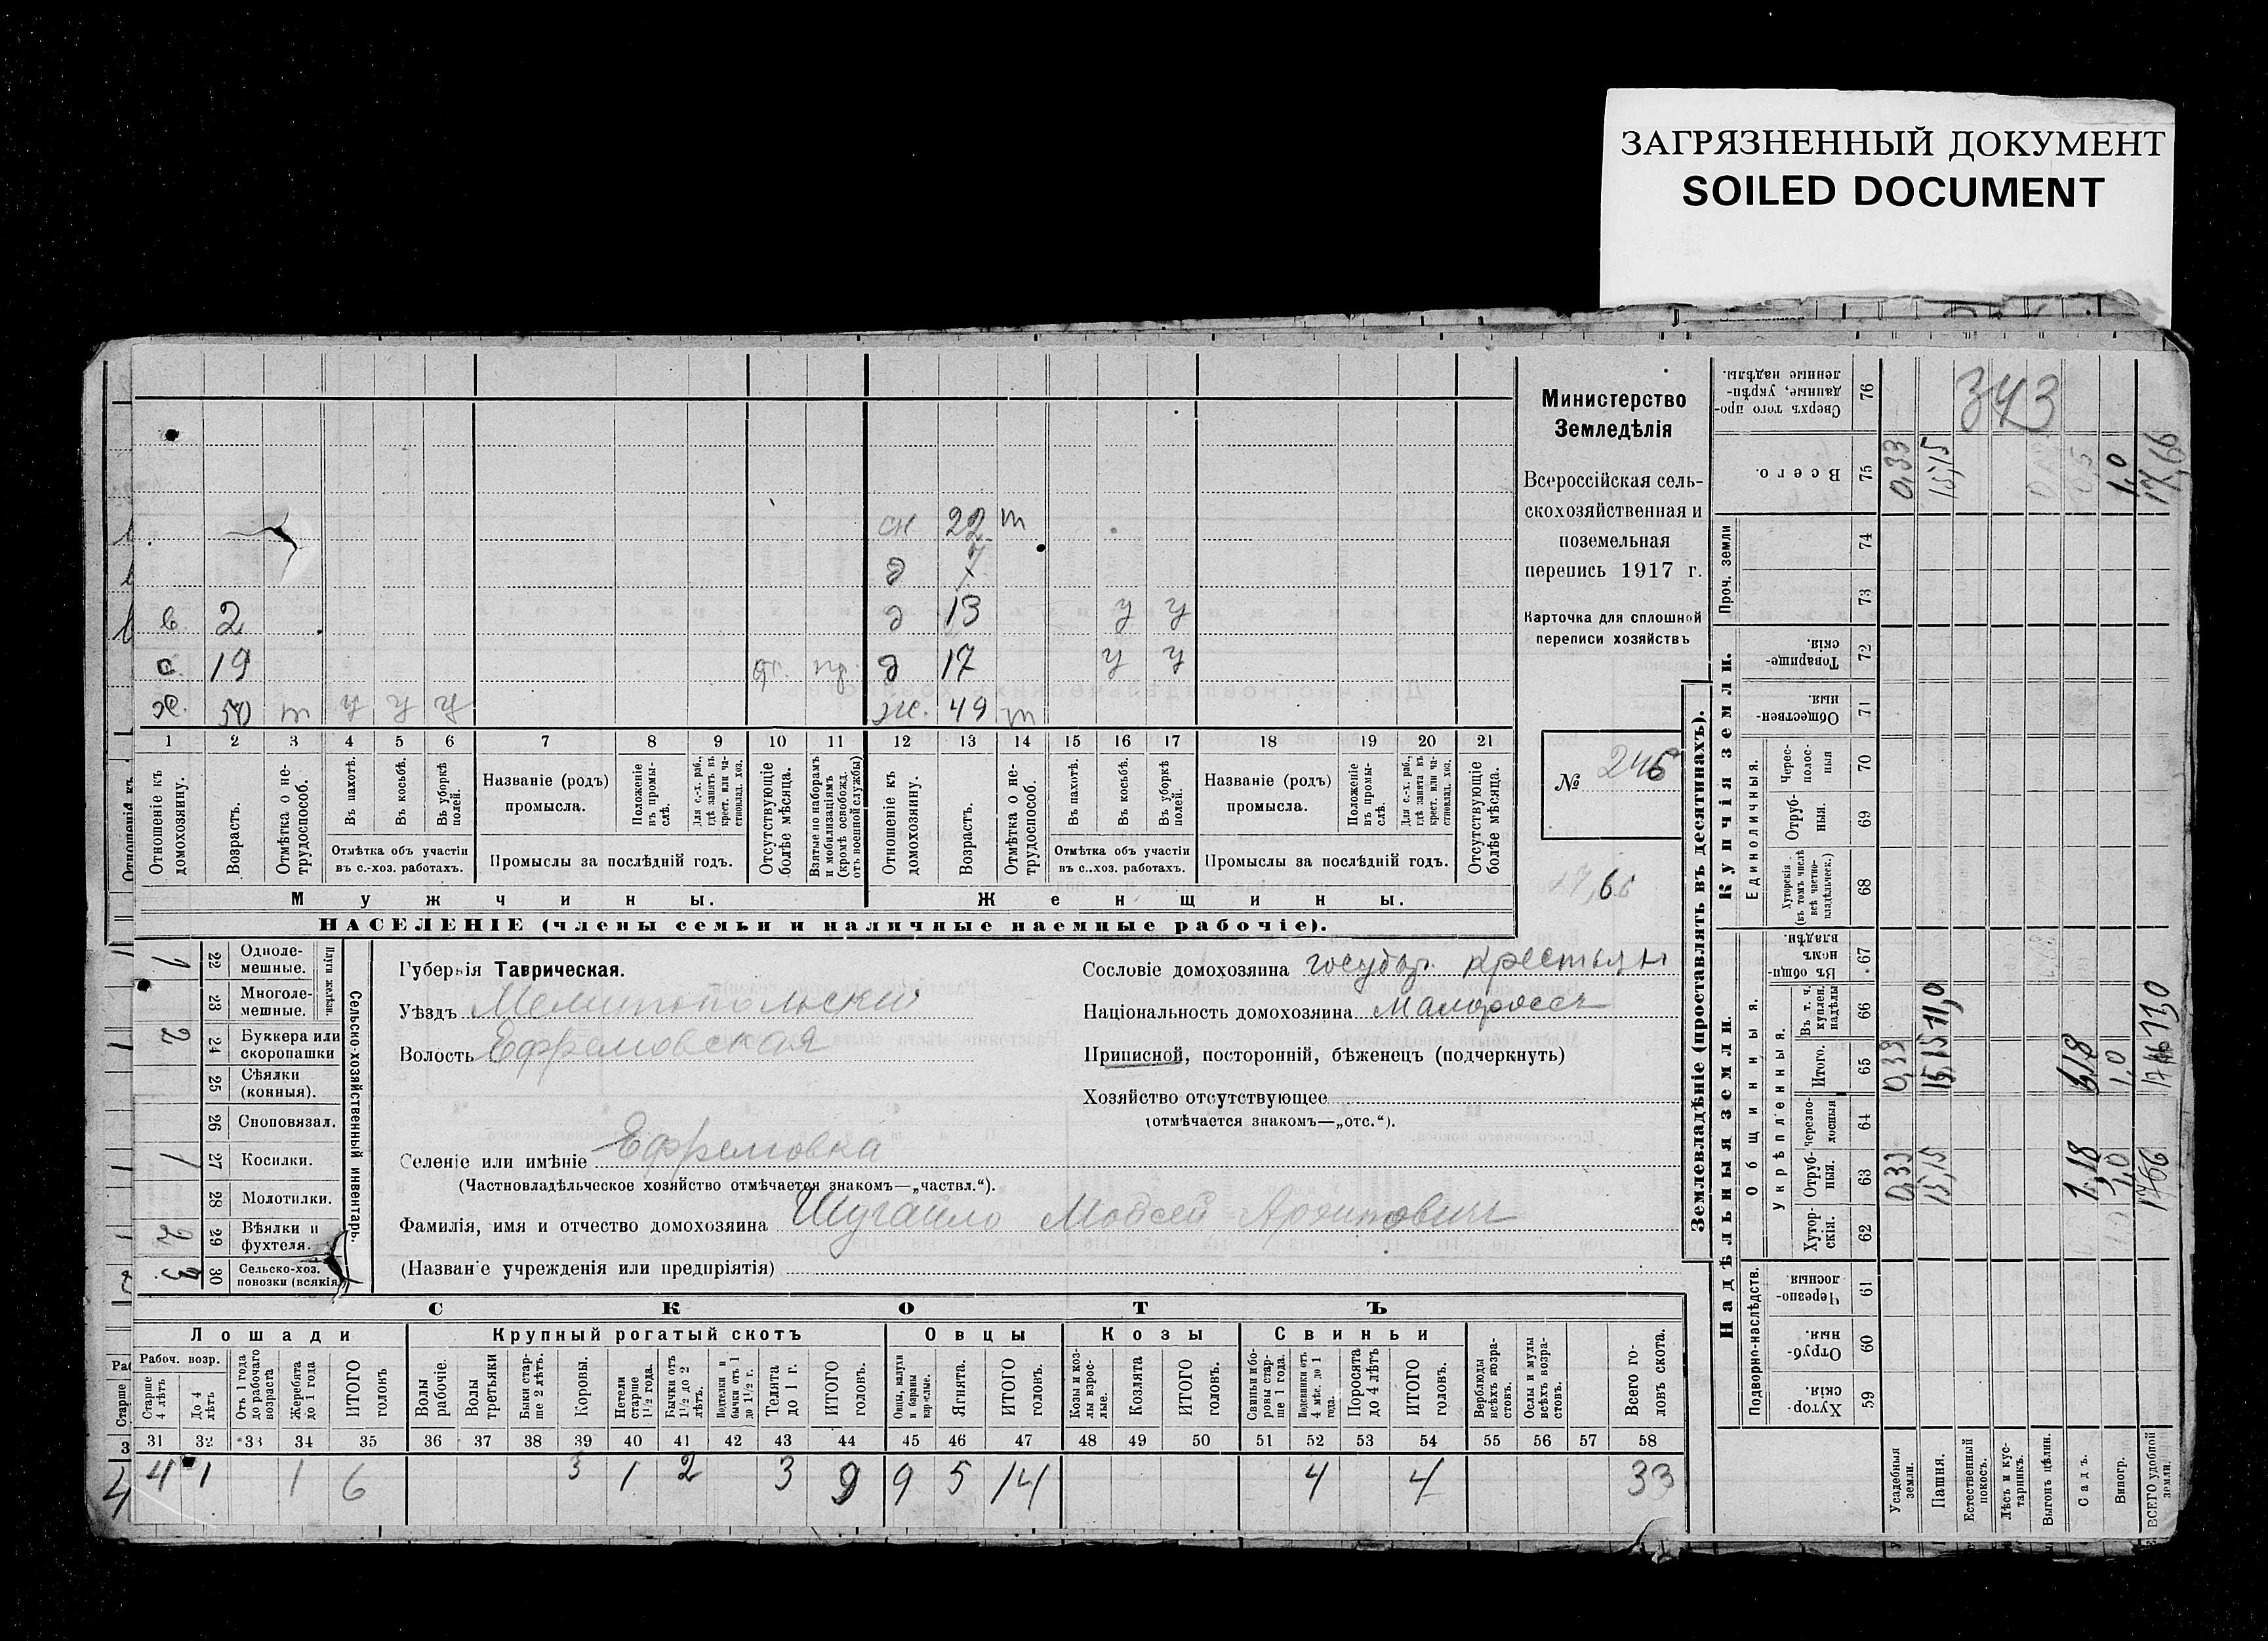 ЗАГРЯЗНЕННЫЙ ДОКУМЕНТ
SOILED DOCUMENT
343
Министерство
Земледѣлія
Всероссійская сель-
скохозяйственная и
поземельная
перепись 1917 г.
Карточка для сплошной
переписи хозяйствъ
№ 246
ж 22 т
д
в. 2 д 13 у у
с. 19 д 17 у у
х. 50 т у у у ж. 49 т
1 2 3 4 5 6 7 8 9 10 11 12 13 14 15 16 17 18 19 20 21
Отношеніе къ домохозяину.
Возрастъ.
Отмѣтка о не-трудоспособ.
Въ пахотѣ.
Въ косьбѣ.
Въ уборкѣ полей.
Отмѣтка объ участіи въ с.-хоз. работахъ.
Названіе (родъ) промысла.
Положеніе въ промы-слѣ.
Для с.-х. раб., гдѣ занятъ въ крест. или ча-стновлад. хоз.
Промыслы за послѣдній годъ.
Отсутствующіе болѣе мѣсяца.
Взятые по наборамъ и мобилизаціямъ (кромѣ освобожд. отъ военной службы)
Отношеніе къ домохозяину.
Возрастъ.
Отмѣтка о не-трудоспособ.
Въ пахотѣ.
Въ косьбѣ.
Въ уборкѣ полей.
Отмѣтка объ участіи въ с..хоз. работахъ.
Названіе (родъ) промысла.
Положеніе въ промы-слѣ.
Для с.-х. раб., гдѣ занята въ крест. или ча-стновлад. хоз.
Промыслы за послѣдній годъ.
Отсутствующіе болѣе мѣсяца.
Мужчины. Женщины.
НАСЕЛЕНІЕ (члены семьи и наличные наемные рабочіе).
Сельско-хозяйственный инвентарь.
Плуги желѣзн.
1 22 Одноле-мешные.
23 Многоле-мешные.
2 24 Буккера или скоропашки
25 Сѣялки (конныя).
26 Сноповязал.
1 27 Косилки.
28 Молотилки.
2 29 Вѣялки и фухтеля.
3 30 Сельско-хоз. повозки (всякія)
Губернія Таврическая.
Уѣздъ Мелитопольскій
Волость Ефремовская
Селеніе или имѣніе Ефремовка
(Частновладѣльческое хозяйство отмѣчается знакомъ—„частвл.“).
Фамилія, имя и отчество домохозяина Шугайло Мойсей Архипович
(Названіе учрежденія или предпріятія)
Сословіе домохозяина государ. крестьян
Національность домохозяина малороссъ
Приписной, посторонній, бѣженецъ (подчеркнуть)
Хозяйство отсутствующее
(отмѣчается знакомъ—„отс.“).
СКОТЪ
Лошади Крупный рогатый скотъ Овцы Козы Свиньи
Рабоч. возр.
Старше 4 лѣтъ
До 4 лѣтъ
Отъ 1 года до рабочаго возраста
Жеребята до 1 года
ИТОГО головъ
Волы рабочіе.
Волы третьяки
Быки стар-ше 2 лѣтъ.
Коровы.
Нетели старше 1½ года.
Бычки отъ 1½ до 2 лѣтъ.
Подтелки и бычки отъ 1 до 1½ г.
Телята до 1 г.
ИТОГО головъ.
Овцы, валухи и бараны взрослые.
Ягнята.
ИТОГО головъ.
Козы и коз-лы взрос-лые.
Козлята
ИТОГО головъ.
Свиньи и бо-ровы стар-ше 1 года.
Подсвинки отъ 4 мѣс. до 1 года.
Поросята до 4 лѣтъ
ИТОГО головъ.
Верблюды всѣхъ возра-стовъ.
Ослы и мулы всѣхъ возра-стовъ.
Всего го-ловъ скота.
31 32 33 34 35 36 37 38 39 40 41 42 43 44 45 46 47 48 49 50 51 52 53 54 55 56 57 58
4 1 1 6 3 1 2 3 9 9 5 14 4 4 33
Землевладѣніе (проставлять въ десятинахъ).
Купчія земли.
Надѣльныя земли.
Сверхъ того про-данные, укрѣп-ленные надѣлы. 76
Всего. 75 0,33 15,15 1,0 17,66
Проч. земли 74 73
Товарище-скія. 72
Обществен-ныя. 71
Единоличныя.
Черес-полос-ныя 70
Отруб-ныя. 69
Хуторскія (въ томъ числѣ всѣ частно-владѣльческ.) 68
Общинныя.
Въ общи-номъ владѣн. 67
Укрѣпленныя.
Въ т. ч. куплен. надѣлы 66 11,0 11,0
Итого. 65 0,33 15,15 1,18 1,0
Черезпо-лосныя 64
Отруб-ныя. 63 0,33 15,15 1,18 1,0 17,66
Хутор-скія. 62
Подворно-наслѣдств.
Черезпо-лосныя 61
Отруб-ныя. 60
Хутор-скія 59
Усадебныя земли.
Пашня.
Естественный покосъ.
Лѣсъ и кус-тарникъ.
Выгонъ цѣлин.
Садъ.
Виногр.
ВСЕГО удобной земли.